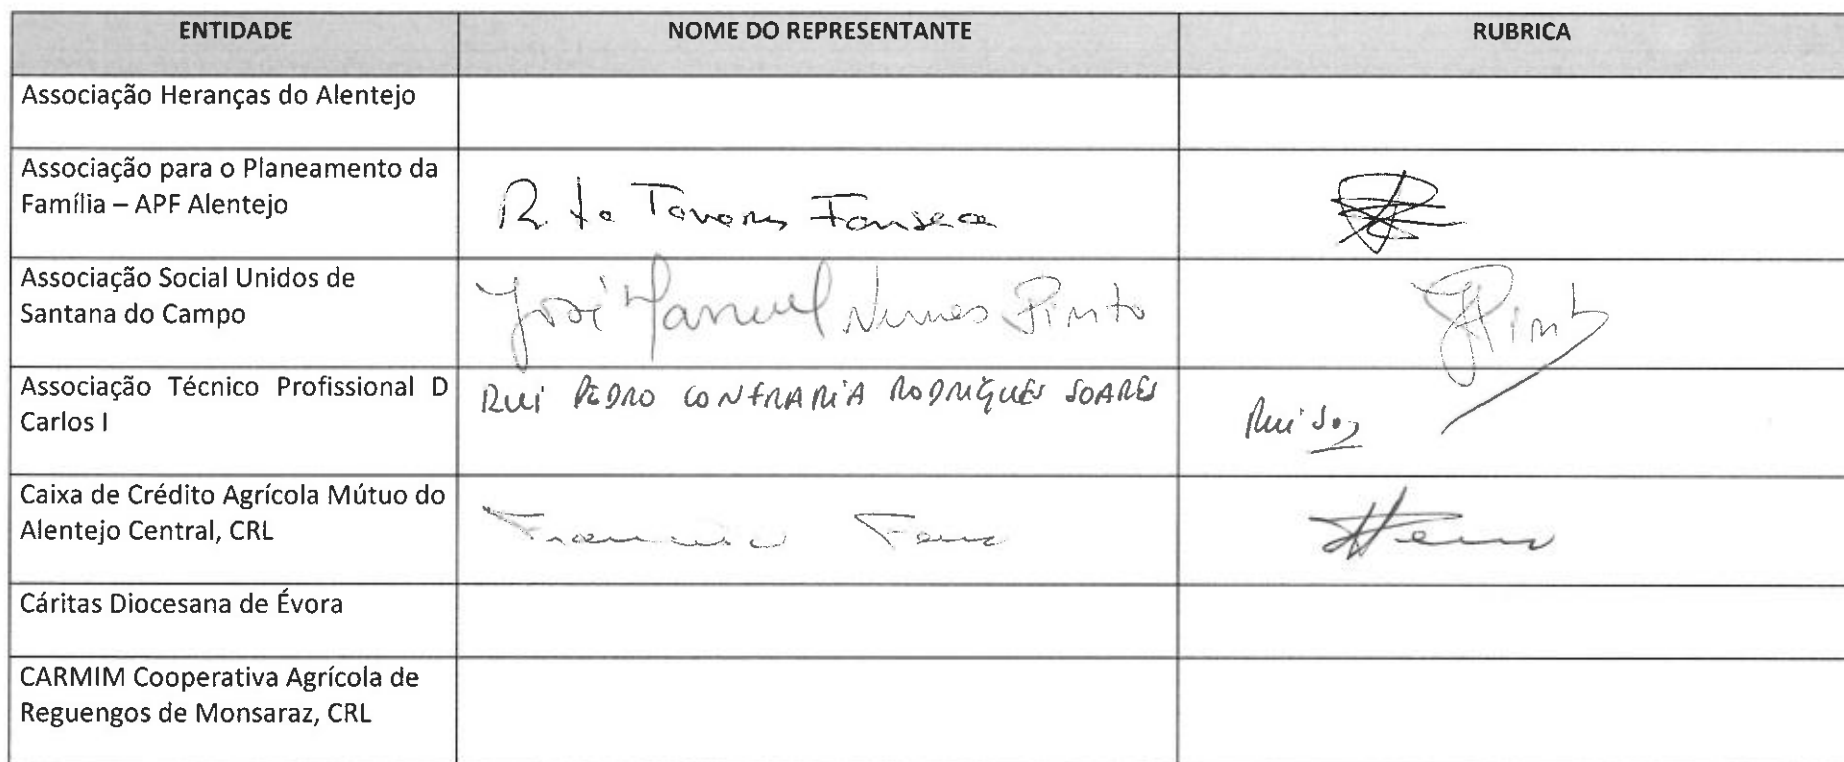 ENTIDADE NOME DO REPRESENTANTE RUBRICA
Associação Heranças do Alentejo
Associação para o Planeamento da
Família – APF Alentejo
Rita Tavares Fonseca
Associação Social Unidos de
Santana do Campo
José Manuel Nunes Pinto
JPinto
Associação Técnico Profissional D
Carlos I
RUI PEDRO CONFRARIA RODRIGUES SOARES
Rui
Caixa de Crédito Agrícola Mútuo do
Alentejo Central, CRL
Francisco
Cáritas Diocesana de Évora
CARMIM Cooperativa Agrícola de
Reguengos de Monsaraz, CRL